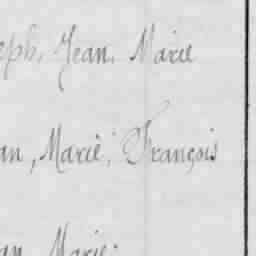 eph, Jean, Marie
an, Marie, François
an Marie